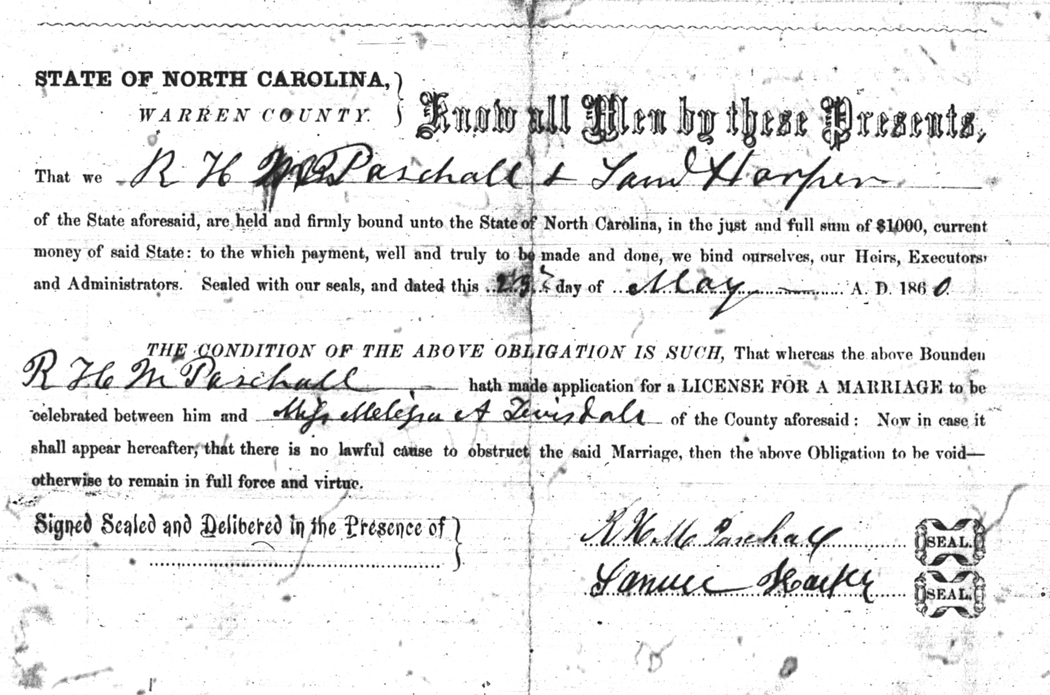 STATE OF NORTH CAROLINA,
WARREN COUNTY.
Know all Men by these Presents,
That we R H M Paschall & Saml Harper
of the State aforesaid, are held and firmly bound unto the State of North Carolina, in the just and full sum of $1000, current
money of said State: to the which payment, well and truly to be made and done, we bind ourselves, our Heirs, Executors
and Administrators. Sealed with our seals, and dated this 23 day of May A. D. 1860.
THE CONDITION OF THE ABOVE OBLIGATION IS SUCH, That whereas the above Bounden
R H M Paschall hath made application for a LICENSE FOR A MARRIAGE to be
celebrated between him and Miss Melissa A Twisdale of the County aforesaid: Now in case it
shall appear hereafter, that there is no lawful cause to obstruct the said Marriage, then the above Obligation to be void—
otherwise to remain in full force and virtue.
Signed Sealed and Delibered in the Presence of
R H M Paschall SEAL.
Samuel Harper SEAL.